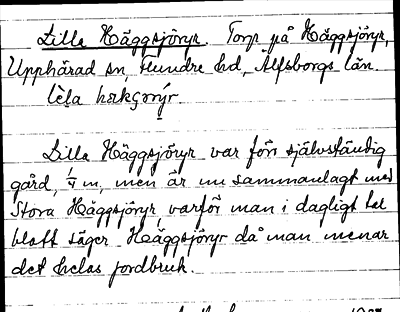 Lilla Häggsjöryr. Torp på Häggsjöryr,
Upphärad sn, Flundre hd, Älfsborgs län.
Lilla Häggsjöryr var förr självständig
gård, 1/4 m, men är nu sammanlagt med
Stora Häggsjöryr, varför man i dagligt tal
blott säger Häggsjöryr då man menar
det helas jordbruk.